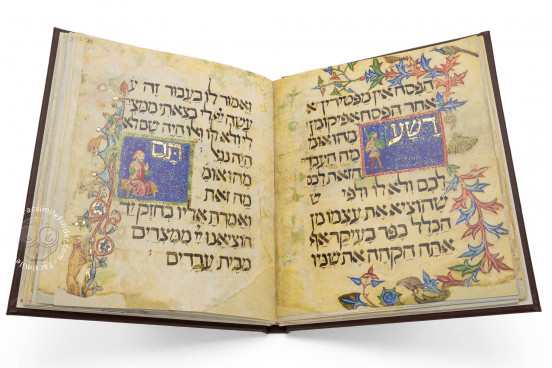 הפסח אין מפטירין א
אחר הפסח אפיקומן
רשע
מה הוא אומ
מה העבד
הזאת לכם
לכם ולא לו ולפי ש
שהוציא את עצמו מן
הכלל כפר בעיקר אף
אתה הקהה את שניו
ואמור לו בעבור זה ע
עשה יי לי בצאתי ממצרי
לי ולא לו היה שם לא
היה נגאל
תם
מה הוא אומ
מה זאת
ואמרת אליו בחזק יד
הוציאנו יי ממצרים
מבית עבדים